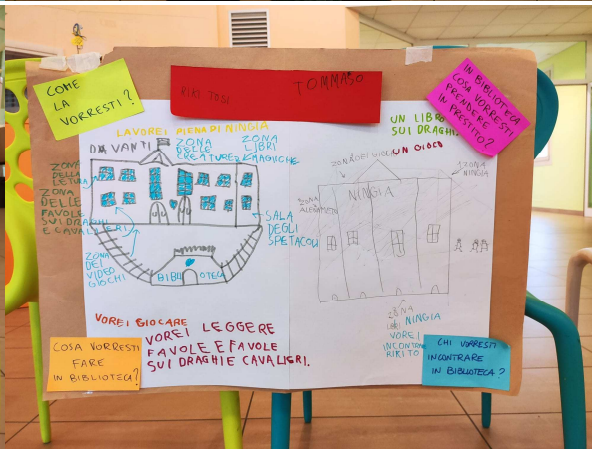 COME
LA
VORRESTI?
RIKI TOSI
TOMMASO
IN BIBLIOTECA
COSA VORRESTI
PRENDERE
IN
PRESTITO?
LA VOREI PIENA DI NINGIA
DAVANTI
ZONA
DELLE
CREATURE
MAGICHE
ZONA
LIBRI
ZONA
DELLA
LETURA
ZONA
DELLE
FAVOLE
SUI DRAGHI
E CAVALIERI
ZONA
DEI
VIDEO
GIOCHI
SALA
DEGLI
SPETACOLI
BIBLIOTECA
UN LIBRO
SUI DRAGHI
UN GIOCO
ZONA DEI
ZONA
NINGIA
NINGIA
ZONA
ZONA
LIBRI NINGIA
VOREI
INCONTRARE
RIKI TO
VOREI GIOCARE
VOREI LEGGERE
FAVOLE E FAVOLE
SUI DRAGHI E CAVALIERI.
COSA VORRESTI
FARE
IN BIBLIOTECA?
CHI VORRESTI
INCONTRARE
IN BIBLIOTECA?